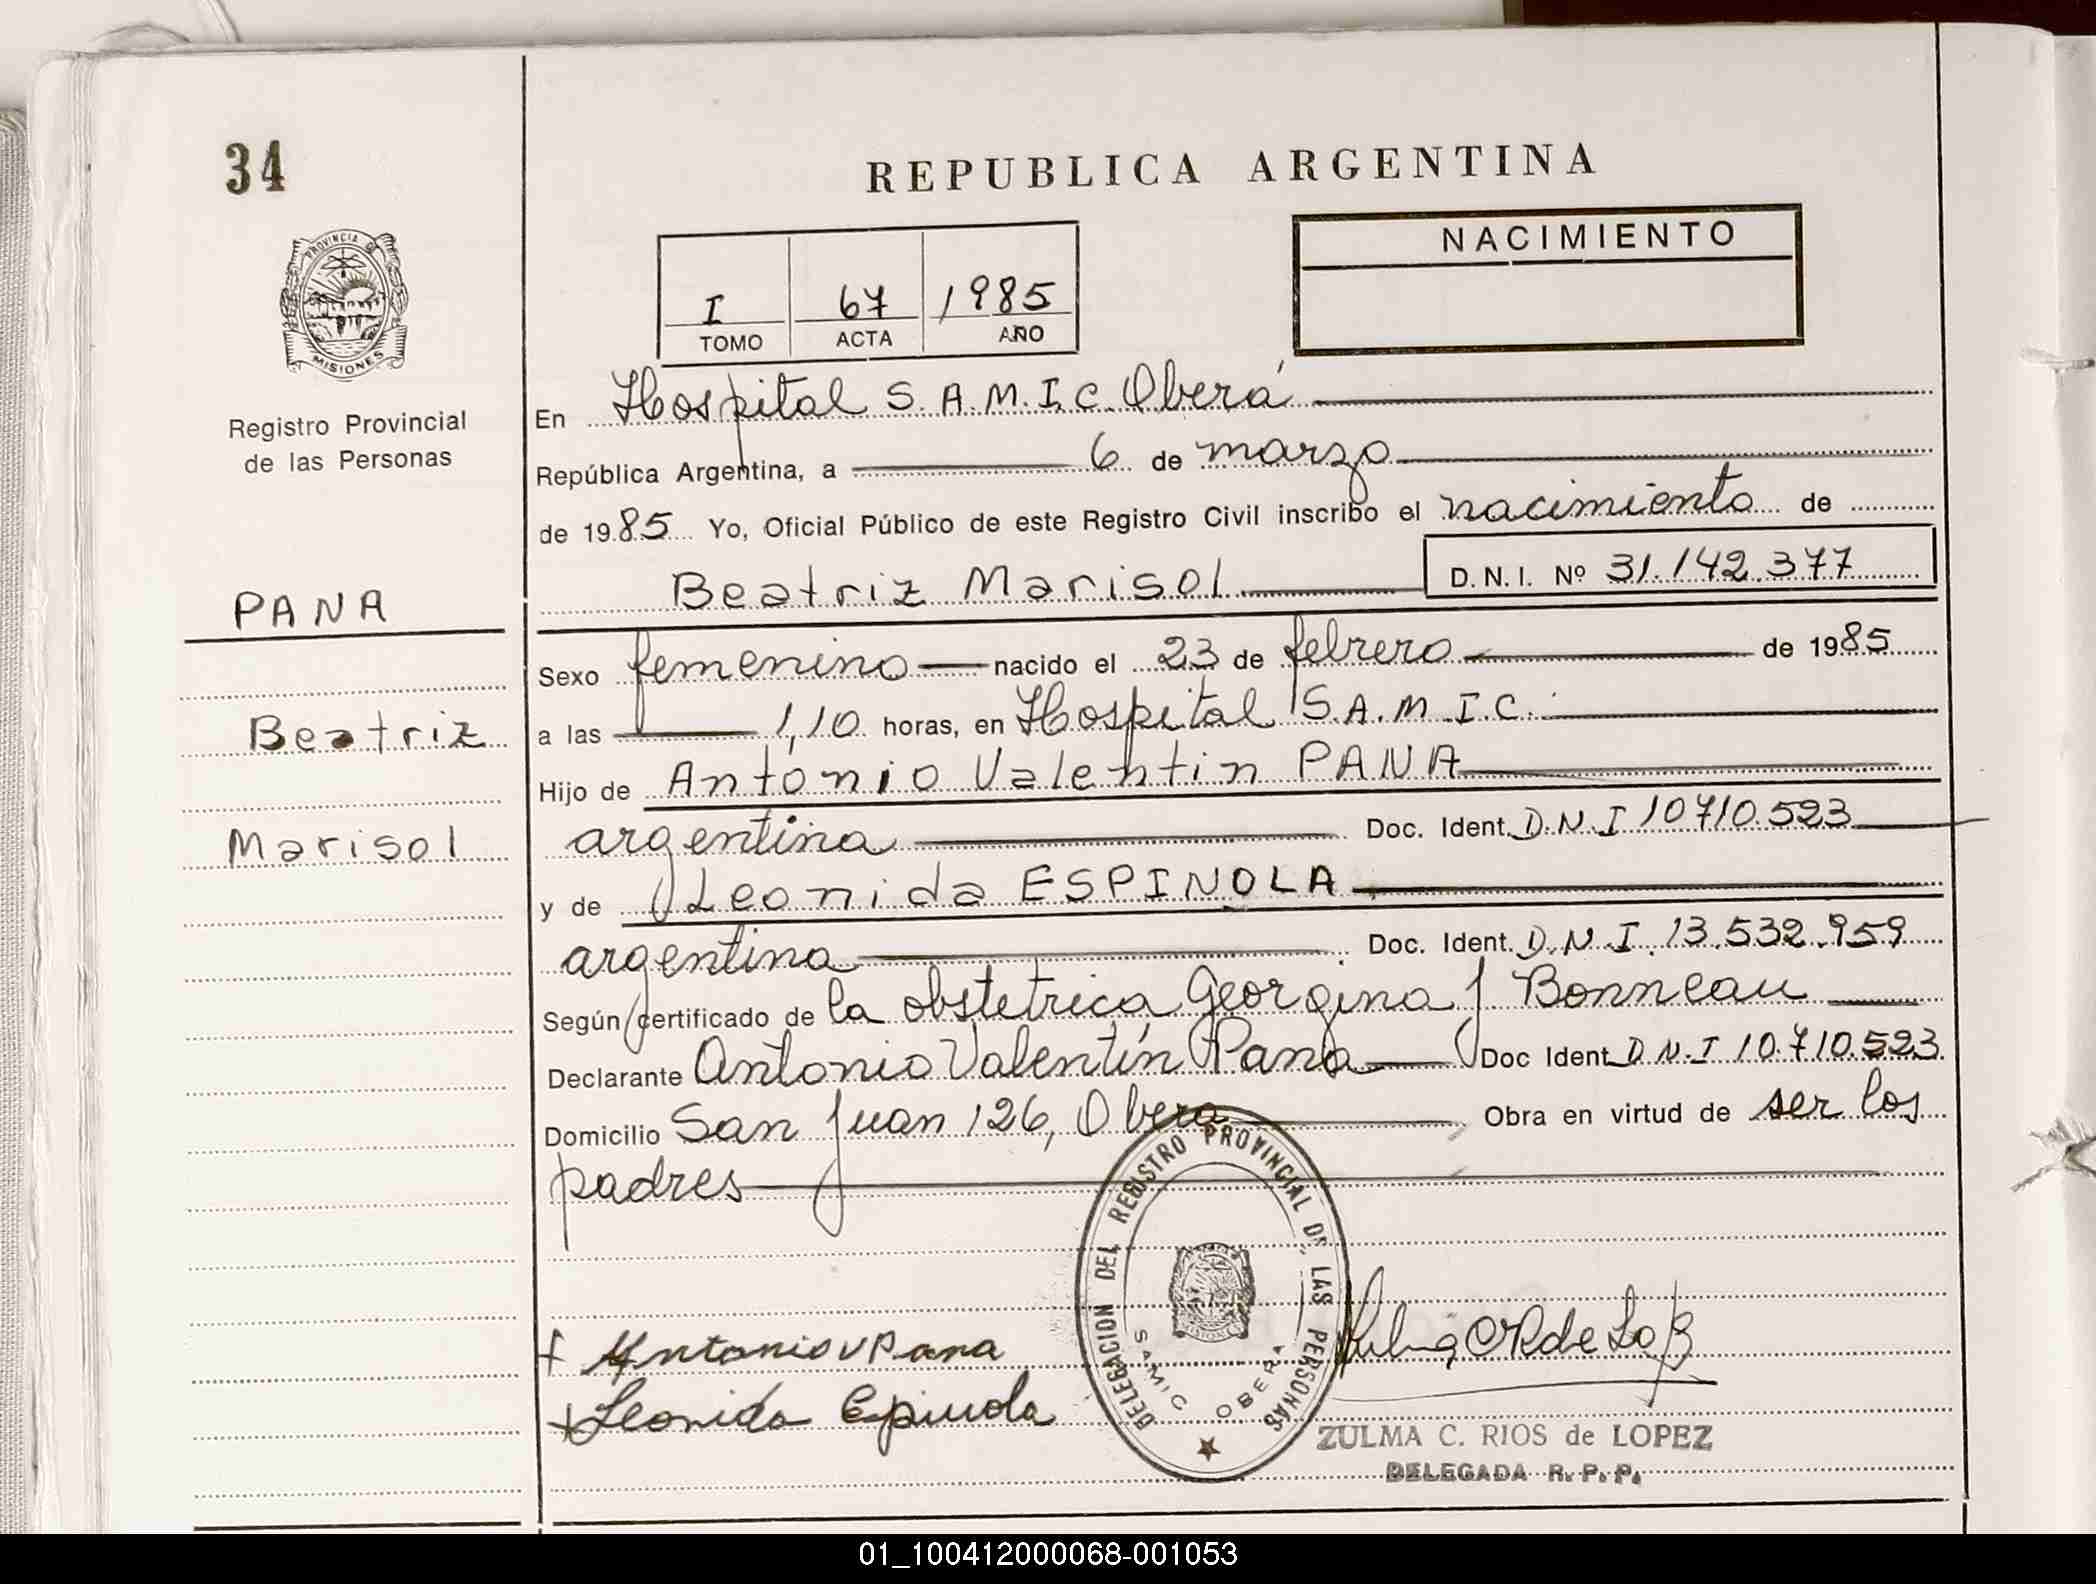 34
REPUBLICA ARGENTINA
PROVINCIA DE
MISIONES
Registro Provincial
de las Personas
NACIMIENTO
I 67 1985
TOMO ACTA AÑO
En Hospital S.A.M.I.C. Oberá
República Argentina, a 6 de marzo
de 1985 Yo, Oficial Público de este Registro Civil inscribo el nacimiento de
Beatriz Marisol D.N.I. Nº 31.142.377
PANA
Beatriz
Marisol
Sexo femenino nacido el 23 de febrero de 1985
a las 1,10 horas, en Hospital S.A.M.I.C.
Hijo de Antonio Valentin PANA
argentina Doc. Ident. D.N.I 10710.523
y de Leonida ESPINOLA
argentina Doc. Ident. D.N.I. 13.532.959
Según certificado de la obstetrica Georgina J Bonneau
Declarante Antonio Valentín Pana Doc Ident D.N.I 10.710.523
Domicilio San Juan 126, Obera Obra en virtud de ser los
padres
DELEGACION DEL REGISTRO PROVINCIAL DE LAS PERSONAS
SAMIC OBERA
Antonio V Pana
Leonida Epinola
ZULMA C. RIOS de LOPEZ
DELEGADA R. P. P.
01_100412000068-001053